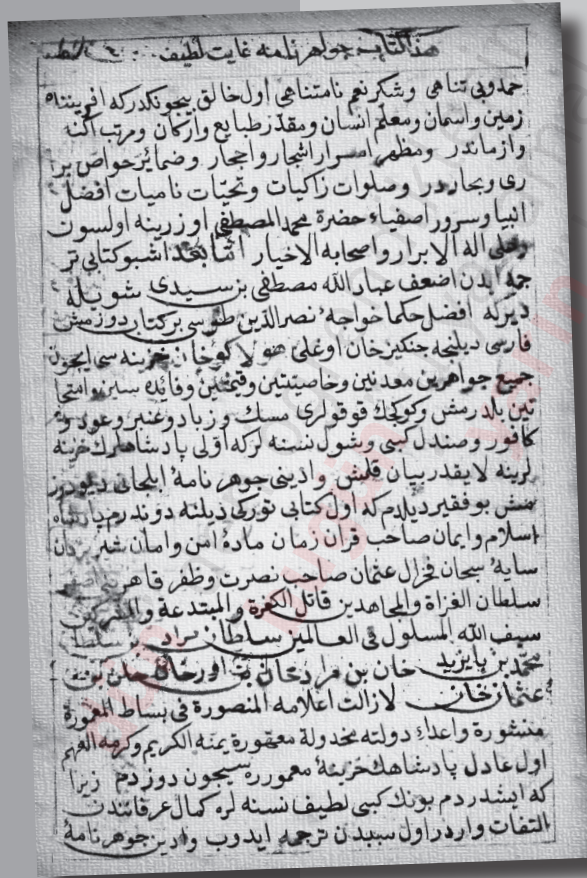 هذا كتاب جواهرنامه غايت لطيف
حمد بي تناهى وشكر نعم نامتناهى اول خالق بيچونكدركه افريننده
زمين واسمان ومعلم انسان ومقدر طبايع واركان ومرتب اكنه
وازماندر ومظهر اسرار اشجار واحجار وضماير خواص بر
رى وبحاردر وصلوات زاكيات وتحيات ناميات افضل
انبيا وسرور اصفياء حضرة محمد المصطفى اوزرينه اولسون
وعلى اله الابرار واصحابه الاخيار اما بعد اشبو كتابى تر
جمه ايدن اضعف عباد الله مصطفى بن سيدى شويله
ديركه افضل حكما خواجه نصر الدين طوسى بر كتاب دوزمش
فارسى ديلنجه جنكيز خان اوغلى هولاكو خان خزينه سى ايچون
جميع جواهرين معدنين وخاصيتين وقيمتين وفايده سين وامتحا
نين بلدرمش وكوكچك قوقولرى مسك وزباد وعنبر وعود و
كافور وصندل كبى وشول نسنه لركه اولى پادشاهلرك خزينه
لرينه لايقدر بيان قلمش وادينى جوهرنامه ايلخانى ديو
مش بو فقير ديلدم كه اول كتابى توركى ديلنه دوندرم پادشاه
اسلام وايمان صاحب قران زمان ماده امن وامان
سايه سبحان فخر ال عثمان صاحب نصرت وظفر قاهر
سلطان الغزاة والمجاهدين قاتل الكفرة والمبتدعة والمشركين
سيف الله المسلول فى العالمين سلطان مراد بن سلطان
محمد بن بايزيد خان بن مراد خان بن اورخان خان بن
عثمان خان لازالت اعلامه المنصورة فى بساط المعمورة
منشورة واعداء دولته مخذولة مقهورة بمنه الكريم وكرمه العميم
اول عادل پادشاهك خزينه معموره سيچون دوزدم زيرا
كه ايشدردم بونك كبى لطيف نسنه لره كمال عرفانندن
التفات واردر اول سببدن ترجمه ايدوب وادين جوهرنامه